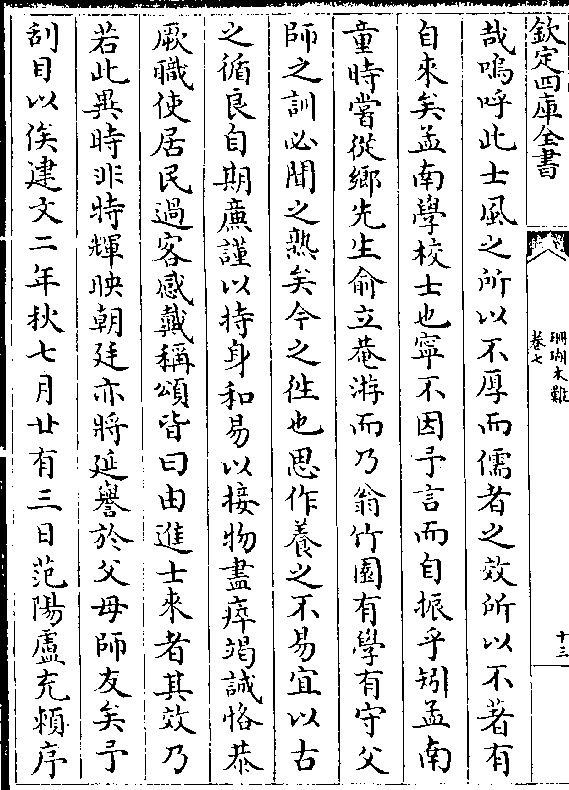 欽定四庫全書
珊瑚木難
卷七
十三
哉嗚呼此士風之所以不厚而儒者之效所以不著有
自來矣孟南學校士也寧不因予言而自振乎矧孟南
童時嘗從鄉先生俞立菴游而乃翁竹園有學有守父
師之訓必聞之熟矣今之往也思作養之不易宜以古
之循良自期廉謹以持身和易以接物盡瘁竭誠恪恭
厥職使居民過客感戴稱頌皆曰由進士來者其效乃
若此異時非特輝映朝廷亦將延譽於父母師友矣予
刮目以俟建文二年秋七月廿有三日范陽盧充頖序